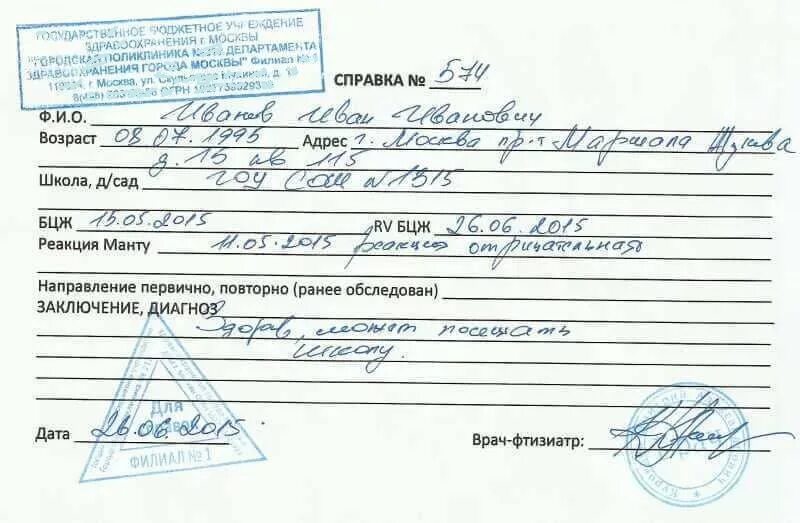 ГОСУДАРСТВЕННОЕ БЮДЖЕТНОЕ УЧРЕЖДЕНИЕ
ЗДРАВООХРАНЕНИЯ г. МОСКВЫ
"ГОРОДСКАЯ ПОЛИКЛИНИКА ДЕПАРТАМЕНТА
ЗДРАВООХРАНЕНИЯ ГОРОДА МОСКВЫ" Филиал № 1
г. Москва, ул.
ОГРН
СПРАВКА № 574
Ф.И.О. Иванов Иван Иванович
Возраст 08.07.1995 Адрес г. Москва пр-т Маршала Жукова
д. 15 кв 115
Школа, д/сад ГОУ СОШ N 1315
БЦЖ 15.05.2015 RV БЦЖ 26.06.2015
Реакция Манту 11.05.2015 реакция отрицательная
Направление первично, повторно (ранее обследован)
ЗАКЛЮЧЕНИЕ, ДИАГНОЗ
Здоров, может посещать
школу.
Для
Дата 26.06.2015 Врач-фтизиатр:
ФИЛИАЛ № 1